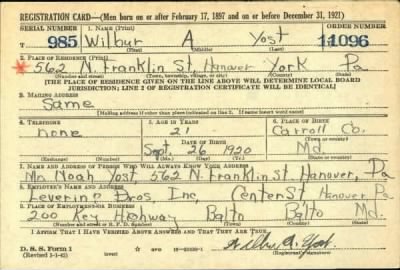 REGISTRATION CARD—(Men born on or after February 17, 1897 and on or before December 31, 1921)
SERIAL NUMBER 1. NAME (Print) ORDER NUMBER
T 985 Wilbur A Yost 11096
(First) (Middle) (Last)
2. PLACE OF RESIDENCE (Print)
* 562 N. Franklin St. Hanover York Pa
(Number and street) (Town, township, village, or city) (County) (State)
[THE PLACE OF RESIDENCE GIVEN ON THE LINE ABOVE WILL DETERMINE LOCAL BOARD
JURISDICTION; LINE 2 OF REGISTRATION CERTIFICATE WILL BE IDENTICAL]
3. MAILING ADDRESS
Same
[Mailing address if other than place indicated on line 2. If same insert word same]
4. TELEPHONE 5. AGE IN YEARS 6. PLACE OF BIRTH
none 21 Carroll Co.
DATE OF BIRTH (Town or county)
Sept. 26 1920 Md.
(Mo.) (Day) (Yr.) (State or country)
7. NAME AND ADDRESS OF PERSON WHO WILL ALWAYS KNOW YOUR ADDRESS
Mr. Noah Yost, 562 N. Franklin St. Hanover, Pa
8. EMPLOYER'S NAME AND ADDRESS
Levering Bros Inc, Center St Hanover Pa
9. PLACE OF EMPLOYMENT OR BUSINESS
200 Key Highway Balto Balto Md.
(Number and street or R. F. D. number) (Town) (County) (State)
I AFFIRM THAT I HAVE VERIFIED ABOVE ANSWERS AND THAT THEY ARE TRUE.
D. S. S. Form 1
(Revised 1-1-42) Wilbur A. Yost